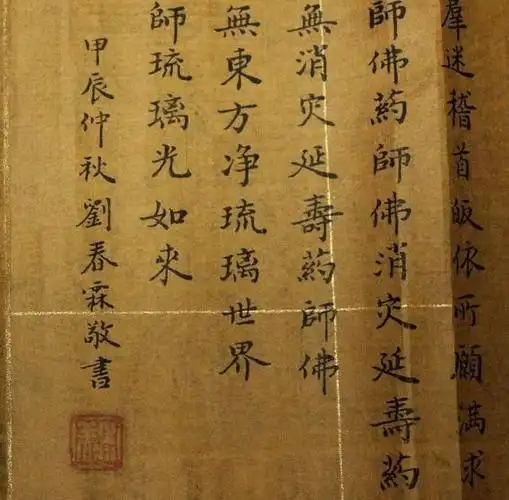 羣迷稽首皈依所願滿求
師佛藥師佛消灾延壽藥
無消灾延壽藥師佛
無東方净琉璃世界
師琉璃光如來
甲辰仲秋劉春霖敬書